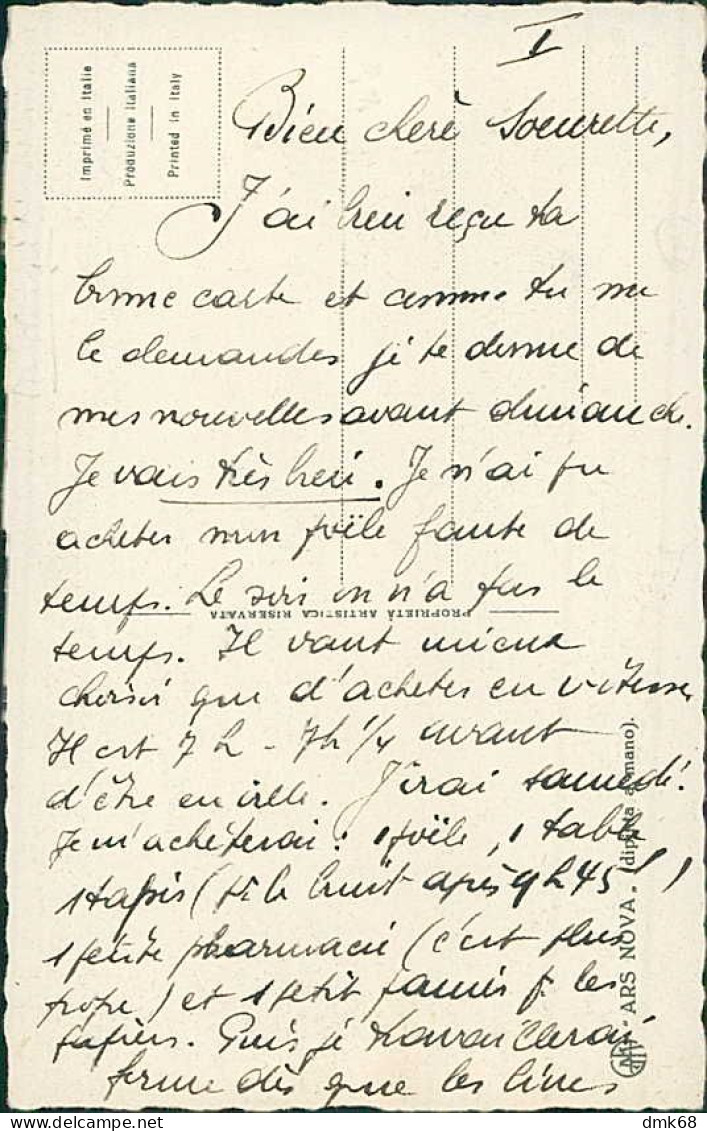 I
Imprimé en Italie
Produzione italiana
Printed in Italy
Bien chère Soeurette,
J'ai bien reçu ta
bonne carte et comme tu me
le demandes je te donne de
mes nouvelles avant dimanche.
Je vais très bien. Je n'ai pu
acheter mon poële faute de
temps. Le soir on n'a pas le
PROPRIETÀ ARTISTICA RISERVATA
temps. Il vaut mieux
choisir que d'acheter en vitesse
Il est 7 h - 7h 1/4 avant
d'être en ville. J'irai samedi.
Je m'achèterai : 1 poële, 1 table
1 tapis (p. le bruit après 9 h 45 !)
1 petite pharmacie (c'est plus
propre) et 1 petit panier p. les
papiers. Puis je travaillerai
ferme dès que les livres
ARS NOVA. (dipinta a mano).
dmk68